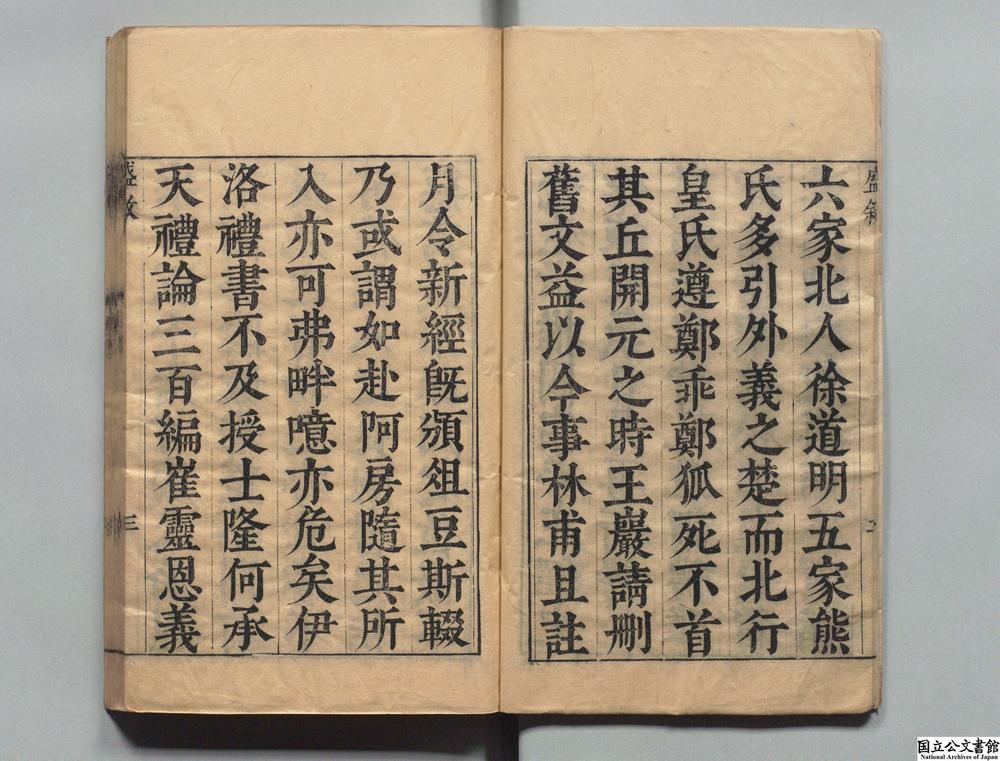 六家北人徐道明五家熊
氏多引外義之楚而北行
皇氏遵鄭乖鄭狐死不首
其丘開元之時王巖請刪
舊文益以今事林甫且註
月令新經旣頒俎豆斯輟
乃或謂如赴阿房隨其所
入亦可弗畔噫亦危矣伊
洛禮書不及授士隆何承
天禮論三百編崔靈恩義
三
国立公文書館
National Archives of Japan